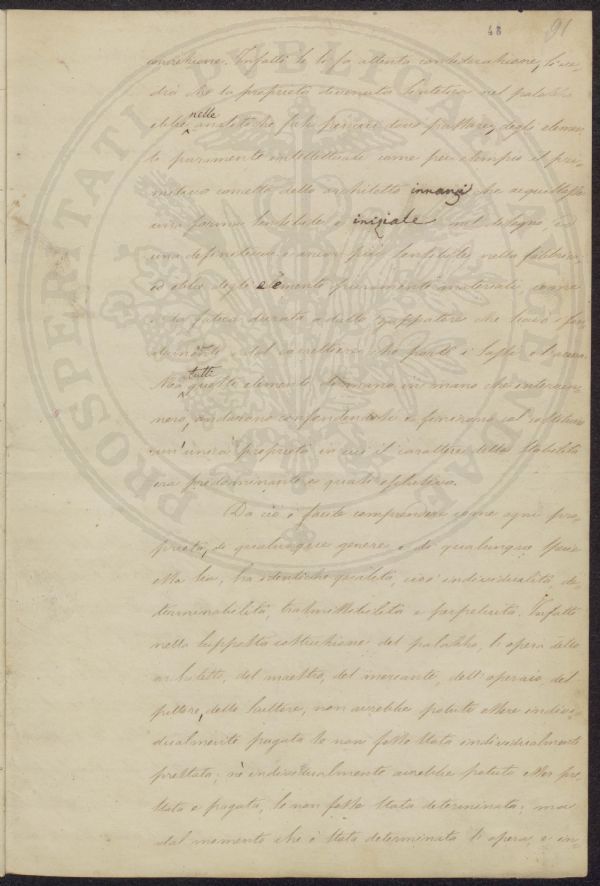 48 91
Infatti se si fa attenta considerazione, si ve-
drà che la proprietà divenuta sintetica nel palazzo
ebbe nelle
to puramente intellettuale come per esempio il pri-
mitivo concetto dello architetto innanzi che acquistasse
una forma sensibile e iniziale nel disegno ed
una definitiva e ancor più sensibile nella fabbrica,
ed ebbe degli elementi puramente materiali come
la fatica durata dallo zappatore che scavò i fon-
damenti e dal carrettiere che portò i sassi e l'arena.
Ma tutti questi elementi di mano in mano che interven-
nero, andarono confondendosi e finirono col costituire
un'unica proprietà in cui il carattere della stabilità
era predominante e quasi esclusivo.
Da ciò è facile comprendere come ogni pro-
prietà, di qualunque genere e di qualunque specie
essa sia, ha identiche qualità, cioè individualità, de-
terminabilità, trasmissibilità e perpetuità. Infatti
nella supposta costruzione del palazzo, l'opera dello
architetto, del maestro, del mercante, dell'operaio del
pittore, dello scultore, non avrebbe potuto essere indivi-
dualmente pagata se non fosse stata individualmente
prestata; nè individualmente avrebbe potuto esser pre-
stata e pagata, se non fosse stata determinata; ma
dal momento che è stata determinata l'opera, e in-
PROSPERITATI PUBLICAE AUGENDAE